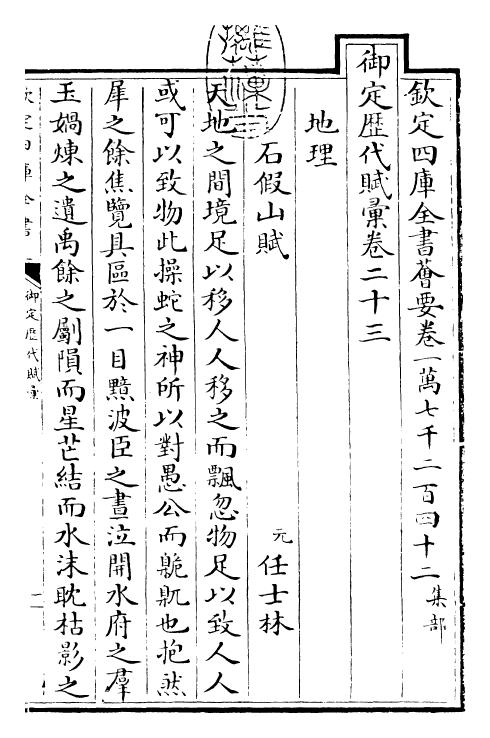 欽定四庫全書薈要卷一萬七千二百四十二集部
御定歷代賦彙卷二十三
地理
石假山賦
元任士林
天地之間境足以移人人移之而飄忽物足以致人人
或可以致物此操蛇之神所以對愚公而臲卼也抱然
犀之餘焦覽具區於一目黥波臣之晝泣開水府之羣
玉媧煉之遺禹餘之劚隕而星芒結而水沫耽枯影之
欽定四庫全書
御定歷代賦彙
一